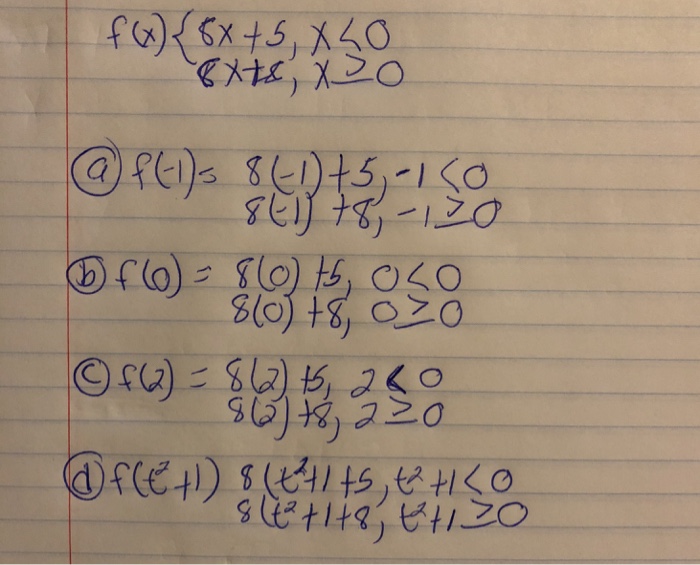 f(x) { 8x+5, x<0
8x+8, x≥0
(a) f(-1)= 8(-1)+5, -1<0
8(-1) +8, -1≥0
(b) f(0) = 8(0)+5, 0<0
8(0)+8, 0≥0
(c) f(2) = 8(2)+5, 2<0
8(2)+8, 2≥0
(d) f(t²+1) 8(t²+1+5, t²+1<0
8(t²+1+8, t²+1≥0